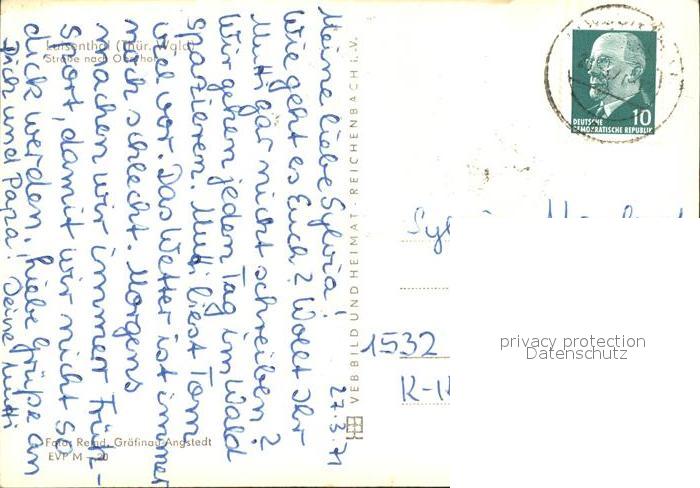 Luisenthal (Thür. Wald)
Straße nach Oberhof
27.3.71
Meine liebe Sylvia!
Wie geht es Euch? Wollt Ihr
Mutti gar nicht schreiben?
Wir gehen jeden Tag im Wald
spazieren. Mutti liest Tom
viel vor. Das Wetter ist immer
noch schlecht. Morgens
machen wir immer Früh-
sport, damit wir nicht so
dick werden. Liebe Grüße an
Dich und Papa! Deine Mutti
Foto: Remd, Gräfinau-Angstedt
EVP M –.20
VEB BILD UND HEIMAT · REICHENBACH i. V.
DEUTSCHE
DEMOKRATISCHE REPUBLIK
10
1532
privacy protection
Datenschutz